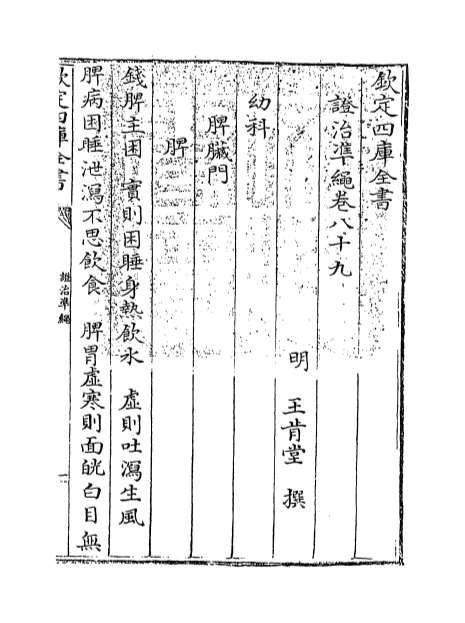 欽定四庫全書
證治準繩卷八十九
明 王肯堂 撰
幼科
脾臟門
脾
錢脾主困 實則困睡身熱飲水 虛則吐瀉生風
脾病困睡泄瀉不思飲食 脾胃虛寒則面㿠白目無
欽定四庫全書
證治準繩
一